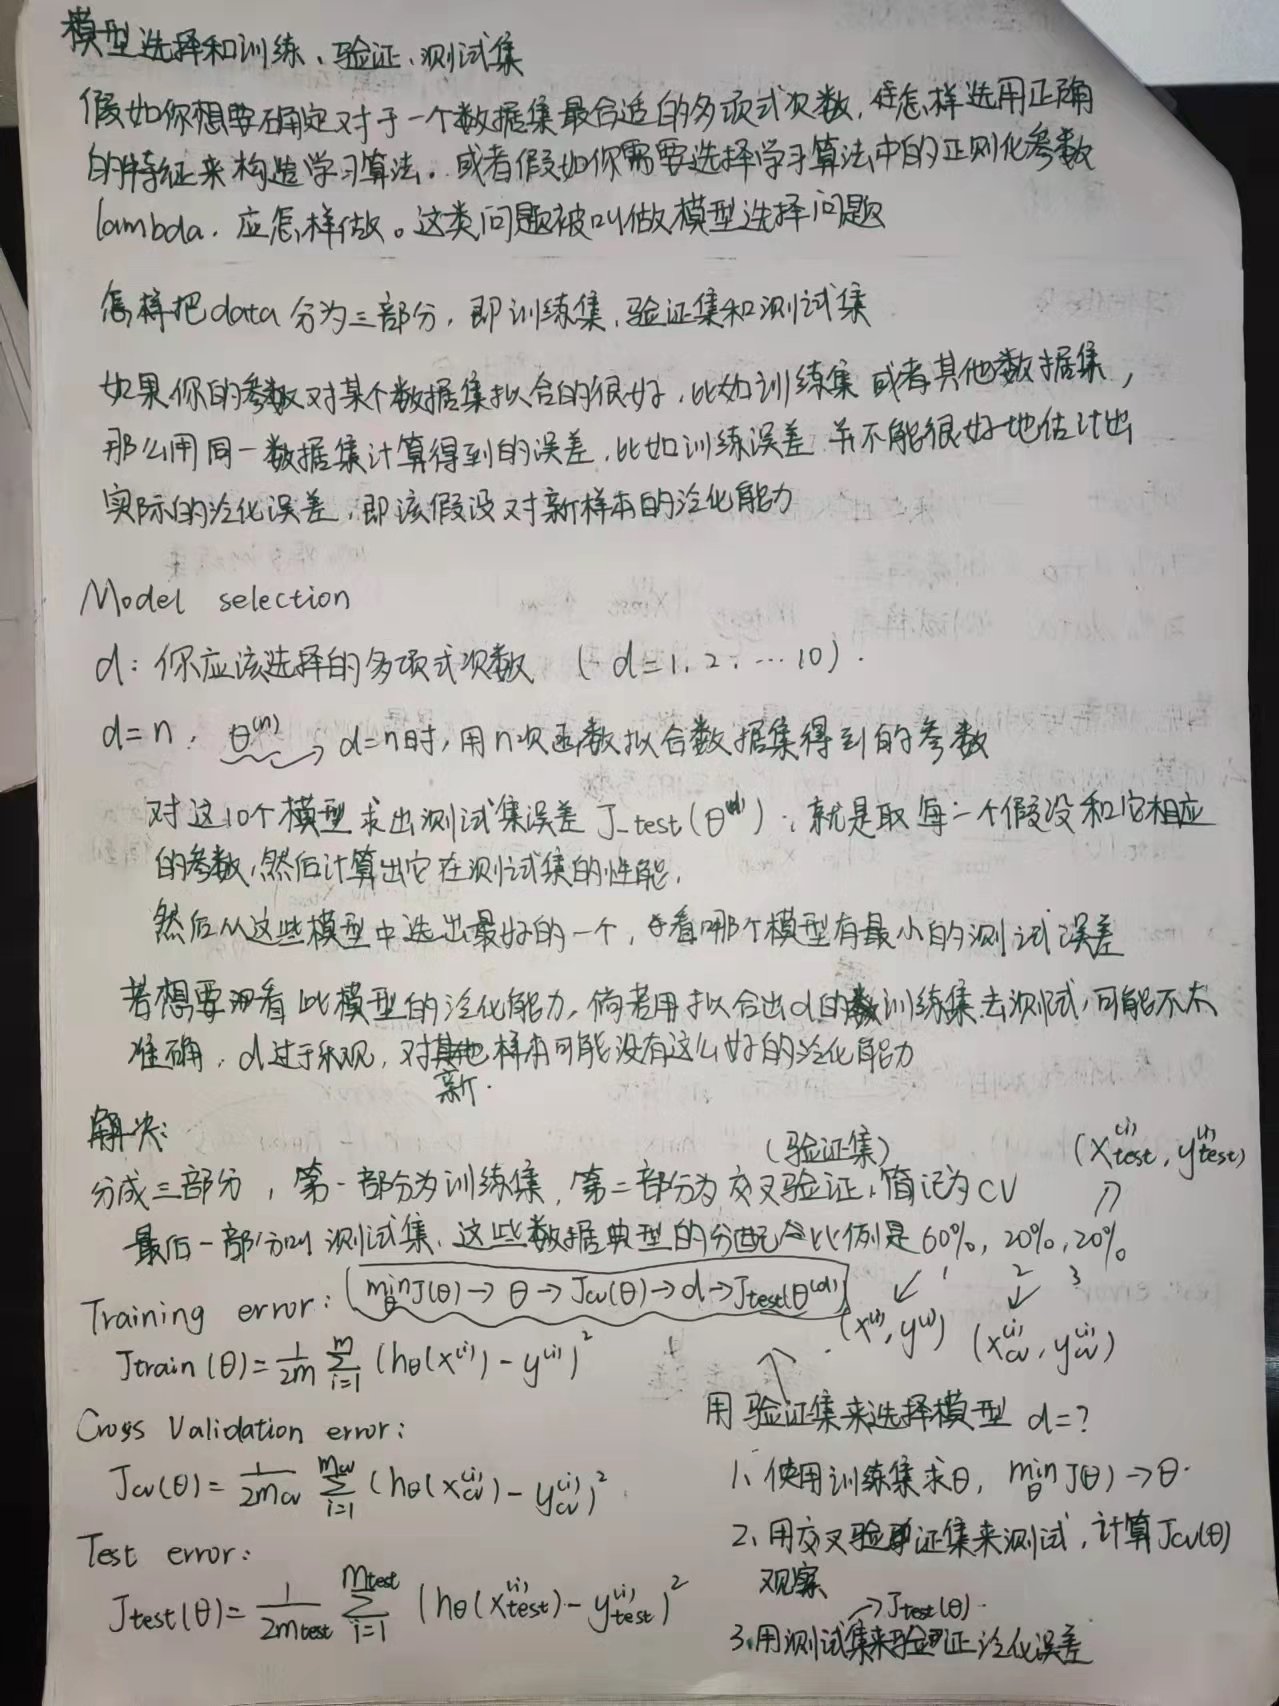 模型选择和训练、验证、测试集
假如你想要确定对于一个数据集最合适的多项式次数,怎样选用正确
的特征来构造学习算法。或者假如你需要选择学习算法中的正则化参数
lambda,应怎样做。这类问题被叫做模型选择问题
怎样把data分为三部分,即训练集、验证集和测试集
如果你的参数对某个数据集拟合的很好,比如训练集或者其他数据集,
那么用同一数据集计算得到的误差,比如训练误差并不能很好地估计出
实际的泛化误差,即该假设对新样本的泛化能力
Model selection
d:你应该选择的多项式次数 (d=1,2,…10).
d=n, θ⁽ⁿ⁾ → d=n时,用n次函数拟合数据集得到的参数
对这10个模型求出测试集误差 J_test(θ⁽ᵈ⁾),就是取每一个假设和它相应
的参数,然后计算出它在测试集的性能,
然后从这些模型中选出最好的一个,看哪个模型有最小的测试误差
若想要看此模型的泛化能力,倘若用拟合出d的训练集去测试,可能不太
准确,d过于乐观,对其他样本可能没有这么好的泛化能力
新.
解决:
(验证集) (x_test⁽ⁱ⁾, y_test⁽ⁱ⁾)
分成三部分,第一部分为训练集,第二部分为交叉验证,简记为CV
最后一部分叫测试集,这些数据典型的分配比例是60%, 20%, 20%
1 2 3
Training error: (min_θ J(θ) → θ → Jcv(θ) → d → Jtest(θ⁽ᵈ⁾))
(x⁽ⁱ⁾, y⁽ⁱ⁾) (x_cv⁽ⁱ⁾, y_cv⁽ⁱ⁾)
Jtrain(θ) = 1/2m Σ_{i=1}^{m} (hθ(x⁽ⁱ⁾) - y⁽ⁱ⁾)²
Cross Validation error:
Jcv(θ) = 1/2mcv Σ_{i=1}^{mcv} (hθ(x_cv⁽ⁱ⁾) - y_cv⁽ⁱ⁾)²
Test error:
Jtest(θ) = 1/2mtest Σ_{i=1}^{mtest} (hθ(x_test⁽ⁱ⁾) - y_test⁽ⁱ⁾)²
用验证集来选择模型 d=?
1、使用训练集求θ, min_θ J(θ) → θ.
2、用交叉验证集来测试,计算Jcv(θ)
观察
→ Jtest(θ).
3、用测试集来验证泛化误差